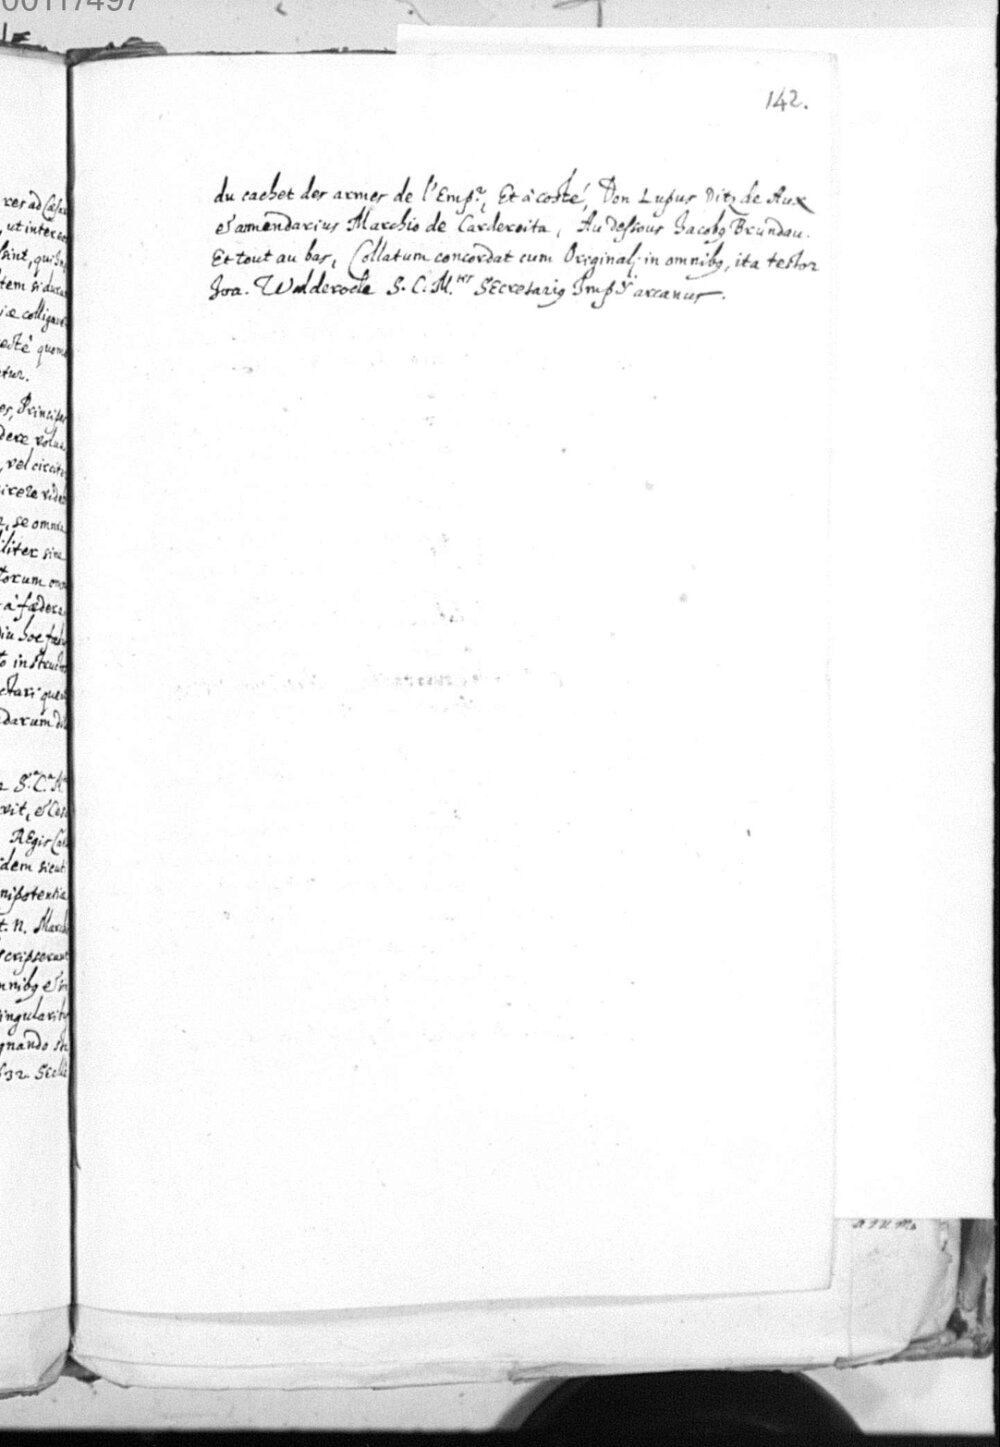 00117497
142.
du cachet des armes de l'Empr, Et à costé, Don Lupus Ditz de Aux
et amendarius Marchio de Cardereita, Au dessous Jacobq Brundau.
Et tout au bas, Collatum concordat cum Originalj in omnibq, ita testor
Joa. Walderode S. C. M.tis Secretariq Imp arcanus.
res ad Cæsa
ut interea
sint, qui in
tem si du
iæ colligan
ecté quom
etur.
es, Principes
dere volu
vel circite
, se omnia
liter sine
torum om
à fædere
diu hoc fæd
o instruct
ctari quem
darum di
S.a C.a M.
vit, et
Regis Ca
dem sicut
nipotentia
t. n. March
scripserunt
mnibq et in
ingularitr
quando
632.